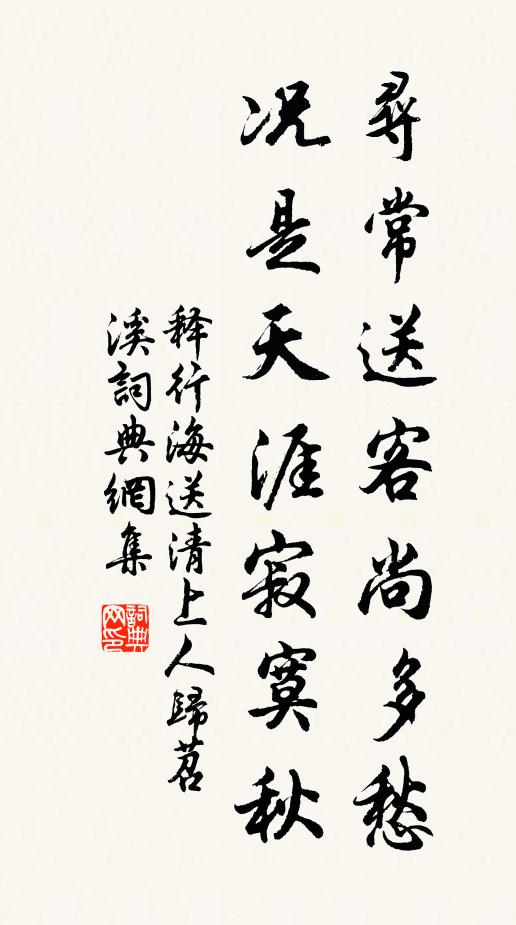 尋常送客尚多愁
况是天涯寂寞秋
释行海送清上人歸苕
溪詞典網集
詞典网印